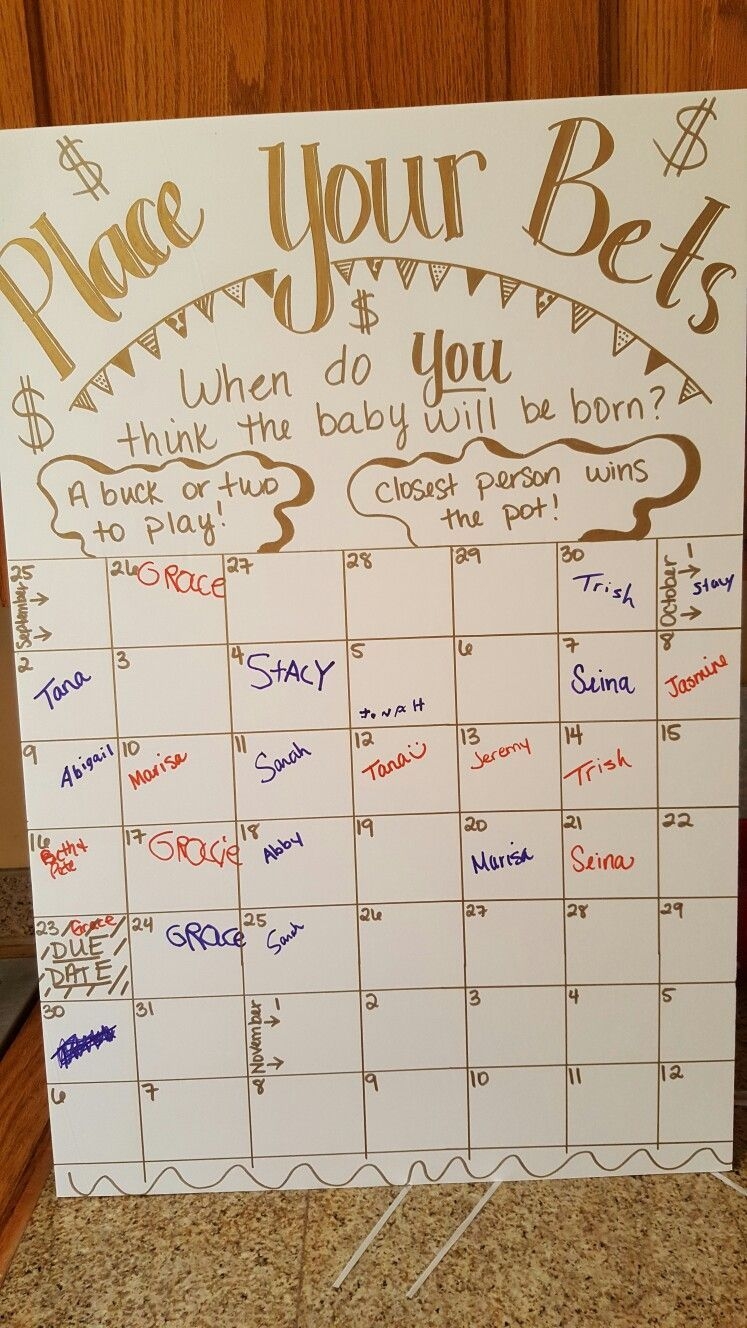 $ $
Place Your Bets
$
When do you
$
think the baby will be born?
A buck or two
to play!
closest person wins
the pot!
25 26 27 28 29 30 1
September GRACE Trish October Stacy
2 3 4 5 6 7 8
Tana STACY Seina Jasmine
9 10 11 12 13 14 15
Abigail Marisa Sarah Tana Jeremy Trish
16 17 18 19 20 21 22
GRACIE Abby Marisa Seina
23 Grace 24 25 26 27 28 29
DUE GRACE Sarah
DATE
30 31 November 1 2 3 4 5
6 7 8 9 10 11 12